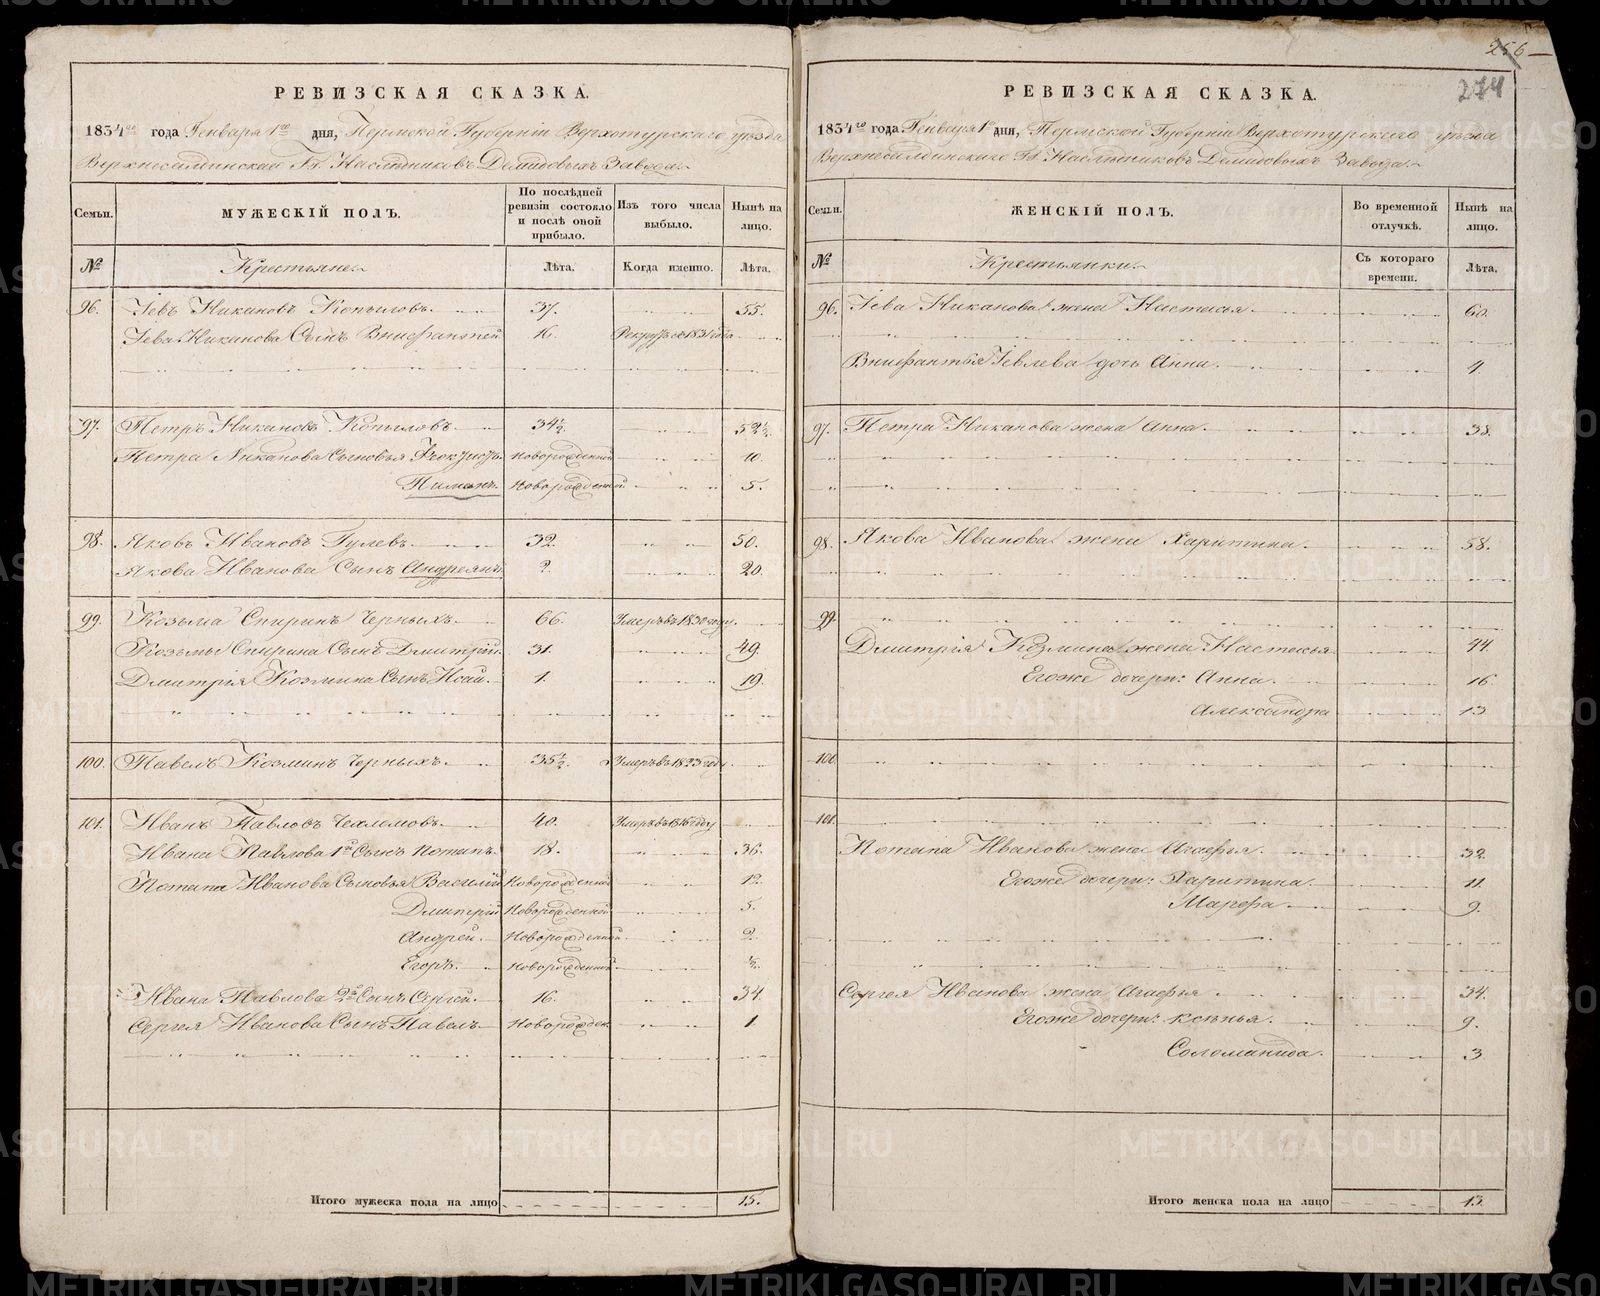 256
274
РЕВИЗСКАЯ СКАЗКА.
1834го года Генваря 1го дня, Пермской Губерніи Верхотурскаго уезда
Верхнесалдинскаго Гг. Наследниковъ Демидовыхъ Завода.
Семьи.
МУЖЕСКІЙ ПОЛЪ.
По послѣдней ревизіи состояло и послѣ оной прибыло.
Изъ того числа выбыло.
Нынѣ на лицо.
№ Крестьяне Лѣта. Когда именно. Лѣта.
96. Іевъ Никановъ Копыловъ. 37. 55.
Іева Никанова Сынъ Внифантей 16. Рекрутъ съ 1831 года
97. Петръ Никановъ Копыловъ. 34½ 52½.
Петра Никанова Сыновья Фектистъ. новорожденной 10.
Пименъ. новорожденной 5.
98. Яковъ Ивановъ Гулевъ. 32. 50.
Якова Иванова Сынъ Андреянъ. 2. 20.
99. Козьма Спиринъ Черныхъ. 66. Умеръ въ 1830 году
Козьмы Спирина Сынъ Дмитрій. 31. 49.
Дмитрія Козмина Сынъ Исай. 1. 19.
100. Павелъ Козминъ Черныхъ. 35½. Умеръ въ 1823 году
101. Иванъ Павловъ Чехлемовъ. 40. Умеръ въ 1816 году
Ивана Павлова 1й Сынъ Потапъ. 18. 36.
Потапа Иванова Сыновья Василій новорожденной 12
Дмитрій новорожденной 5.
Андрей. новорожденной 2.
Егоръ. новорожденной ½.
Ивана Павлова 2й Сынъ Сергей. 16. 34.
Сергея Иванова Сынъ Павелъ новорожден. 1.
Итого мужеска пола на лицо 15.
РЕВИЗСКАЯ СКАЗКА.
1834го года Генваря 1го дня, Пермской Губерніи Верхотурскаго уезда
Верхнесалдинскаго Гг. Наследниковъ Демидовыхъ Завода.
Семьи.
ЖЕНСКІЙ ПОЛЪ.
Во временной отлучкѣ.
Нынѣ на лицо.
№ Крестьянки. Съ котораго времени. Лѣта.
96. Іева Никанова жена Настасья. 60.
Внифантья Іевлева дочь Анна. 4.
97. Петра Никанова жена Анна. 38.
98. Якова Иванова жена Харитина. 58.
99.
Дмитрія Козмина жена Настасья 44.
Егоже дочери: Анна. 16
Александра 13
100
101.
Потапа Иванова жена Агафья. 32
Егоже дочери: Харитина. 11.
Марефа. 9.
Сергея Иванова жена Агафья. 34.
Егоже дочери: Ксенья. 9.
Соломанида. 3
Итого женска пола на лицо 13.
METRIKI.GASO-URAL.RU